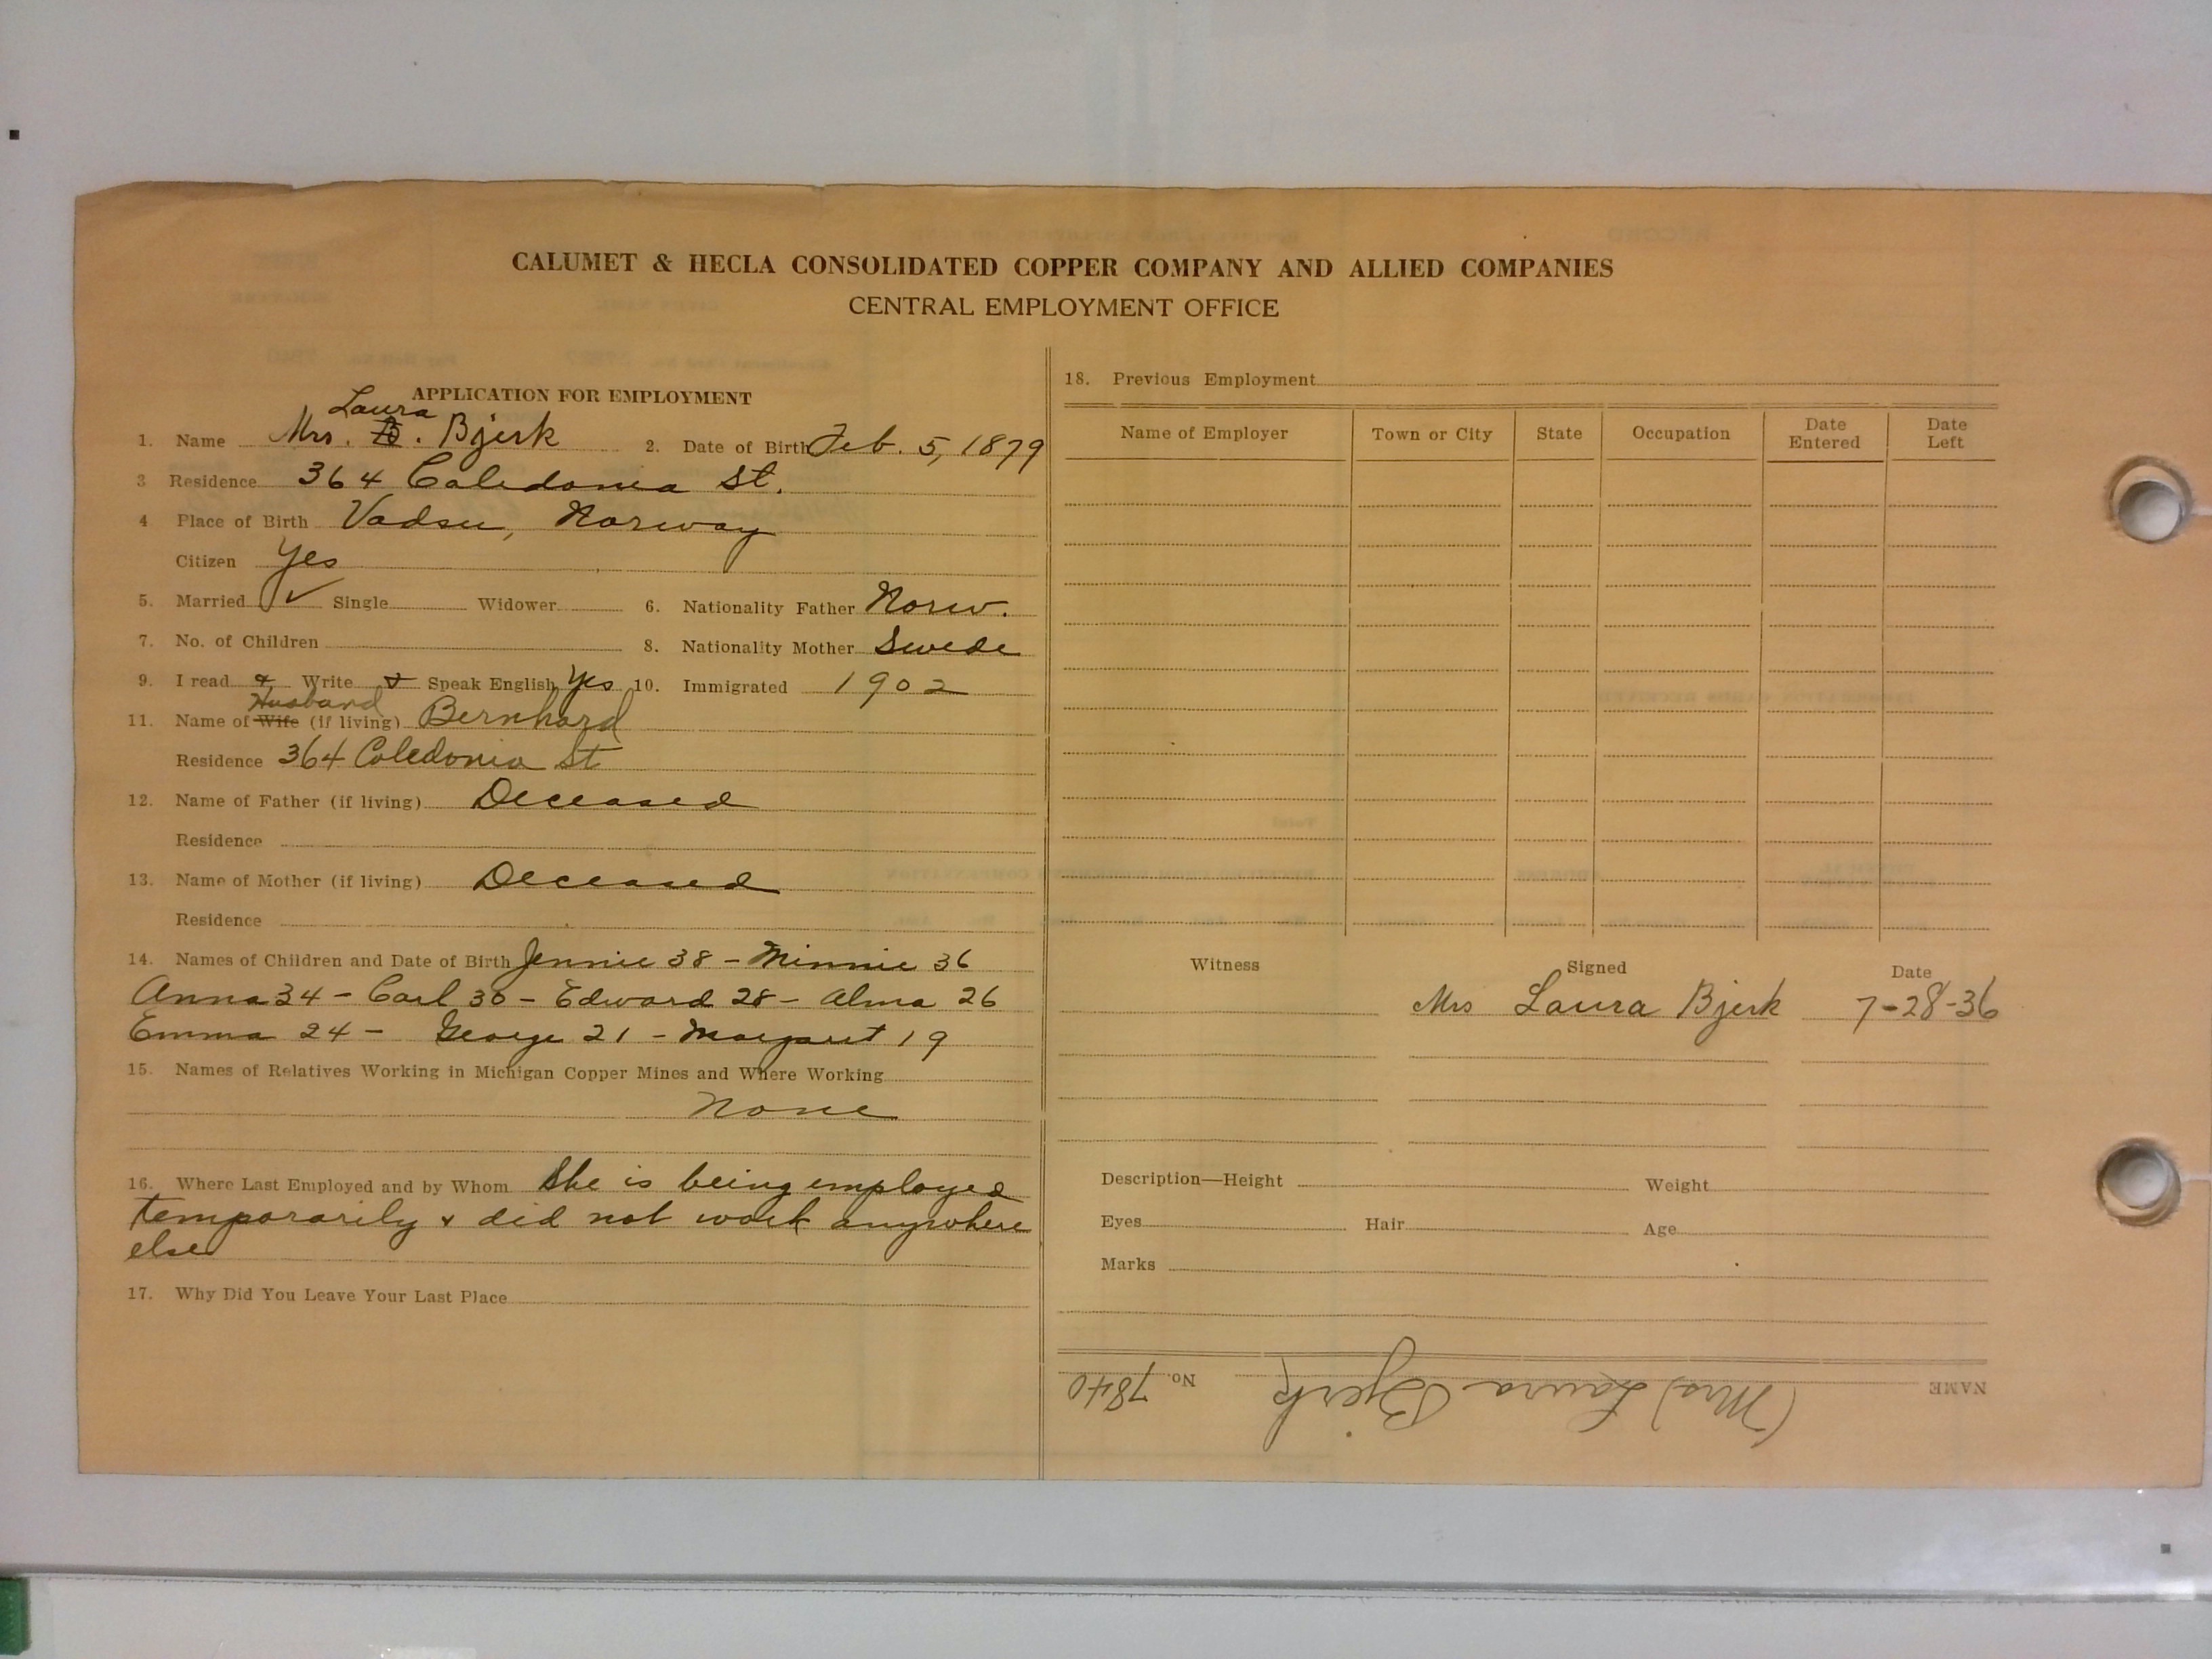 CALUMET & HECLA CONSOLIDATED COPPER COMPANY AND ALLIED COMPANIES
CENTRAL EMPLOYMENT OFFICE
APPLICATION FOR EMPLOYMENT
Laura
1. Name Mrs. B. Bjerk 2. Date of Birth Feb. 5, 1879
3 Residence 364 Caledonia St.
4 Place of Birth Vadsu, Norway
Citizen Yes
5. Married ✓ Single Widower 6. Nationality Father Norw.
7. No. of Children 8. Nationality Mother Swede
9. I read & Write & Speak English Yes 10. Immigrated 1902
Husband
11. Name of Wife (if living) Bernhard
Residence 364 Caledonia St
12. Name of Father (if living) Deceased
Residence
13. Name of Mother (if living) Deceased
Residence
14. Names of Children and Date of Birth Jennie 38 - Minnie 36
Anna 34 - Carl 30 - Edward 28 - Alma 26
Emma 24 - George 21 - Margaret 19
15. Names of Relatives Working in Michigan Copper Mines and Where Working
None
16. Where Last Employed and by Whom She is being employed
temporarily & did not work anywhere
else
17. Why Did You Leave Your Last Place
18. Previous Employment
Name of Employer Town or City State Occupation Date Entered Date Left
Witness Signed Date
Mrs Laura Bjerk 7-28-36
Description—Height Weight
Eyes Hair Age
Marks
NAME (Mrs) Laura Bjerk No. 7840